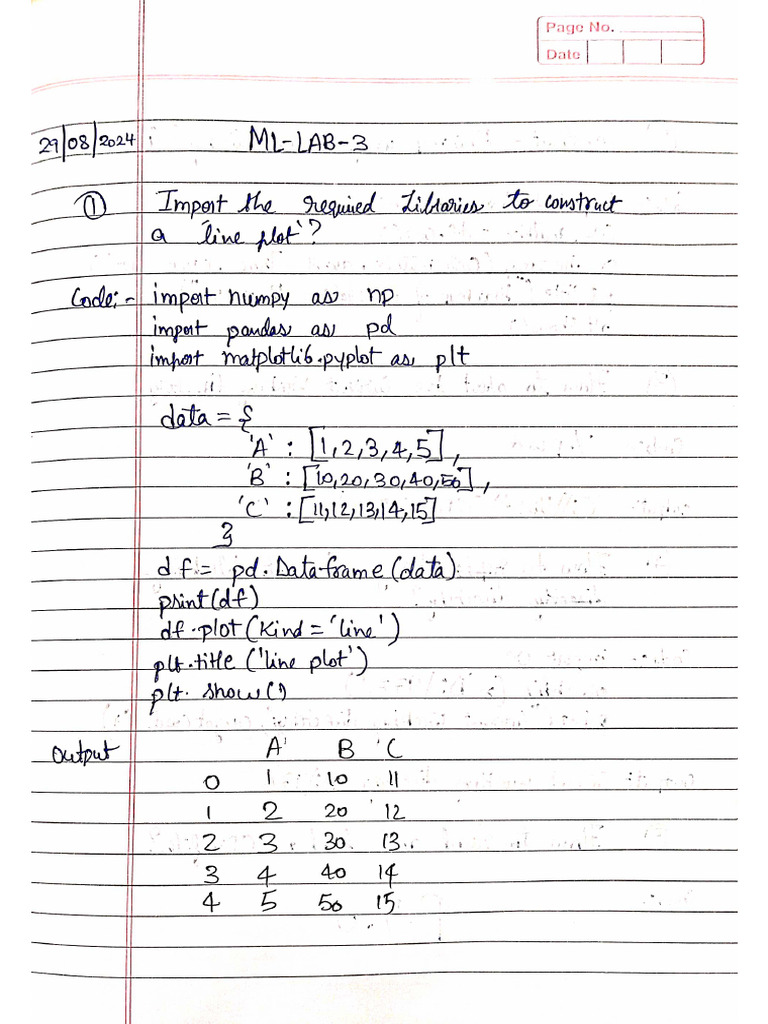 Page No.
Date
29/08/2024 ML-LAB-3
① Import the required Libraries to construct
a 'line plot'?
Code:- import numpy as np
import pandas as pd
import matplotlib.pyplot as plt
data = {
'A' : [1,2,3,4,5],
'B' : [10,20,30,40,50],
'C' : [11,12,13,14,15]
}
df = pd.Dataframe(data)
print(df)
df.plot(kind='line')
plt.title('line plot')
plt.show()
Output A B C
0 1 10 11
1 2 20 12
2 3 30 13
3 4 40 14
4 5 50 15